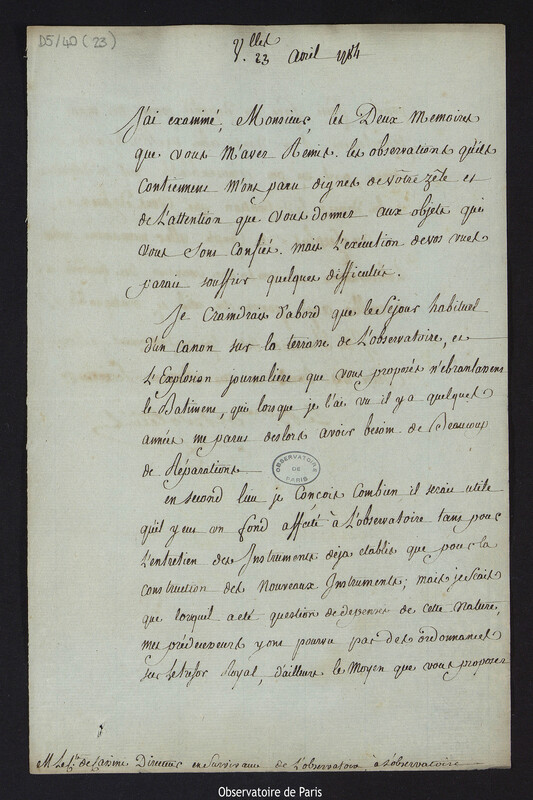 D5/40 (23)
V.lles 23 avril 1784
J'ai examiné, Monsieur, les Deux Memoires
que vous m'avez Remis. les observations qu'ils
Contiennent m'ont paru dignes de vôtre zêle et
de L'attention que vous donnez aux objets qui
vous sont Confiés. mais L'exécution de vos vues
parait souffrir quelques difficultés.
Je Craindrais d'abord que le Séjour habituel
d'un Canon sur la terrasse de L'observatoire, et
L'Explosion journalière que vous proposés n'ebranlassent
le Batiment, qui lorsque je l'ai vu il y a quelques
années me parut deslors avoir besoin de Beaucoup
de Réparations.
OBSERVATOIRE DE PARIS
en second lieu je Concois Combien il serait utile
qu'il y eut un fond affecté à L'observatoire tant pour
L'entretien des Instruments déja etablis que pour la
Construction des Nouveaux Instruments; mais je Scais
que lorsquil a eté question de depenses de cette Nature,
mes prédecesseurs y ont pourvu par des ordonnances
sur le trésor Royal, d'ailleurs le Moyen que vous proposez
M. le C.te de Cassini Directeur en Survivance de L'observatoire, à L'observatoire
Observatoire de Paris